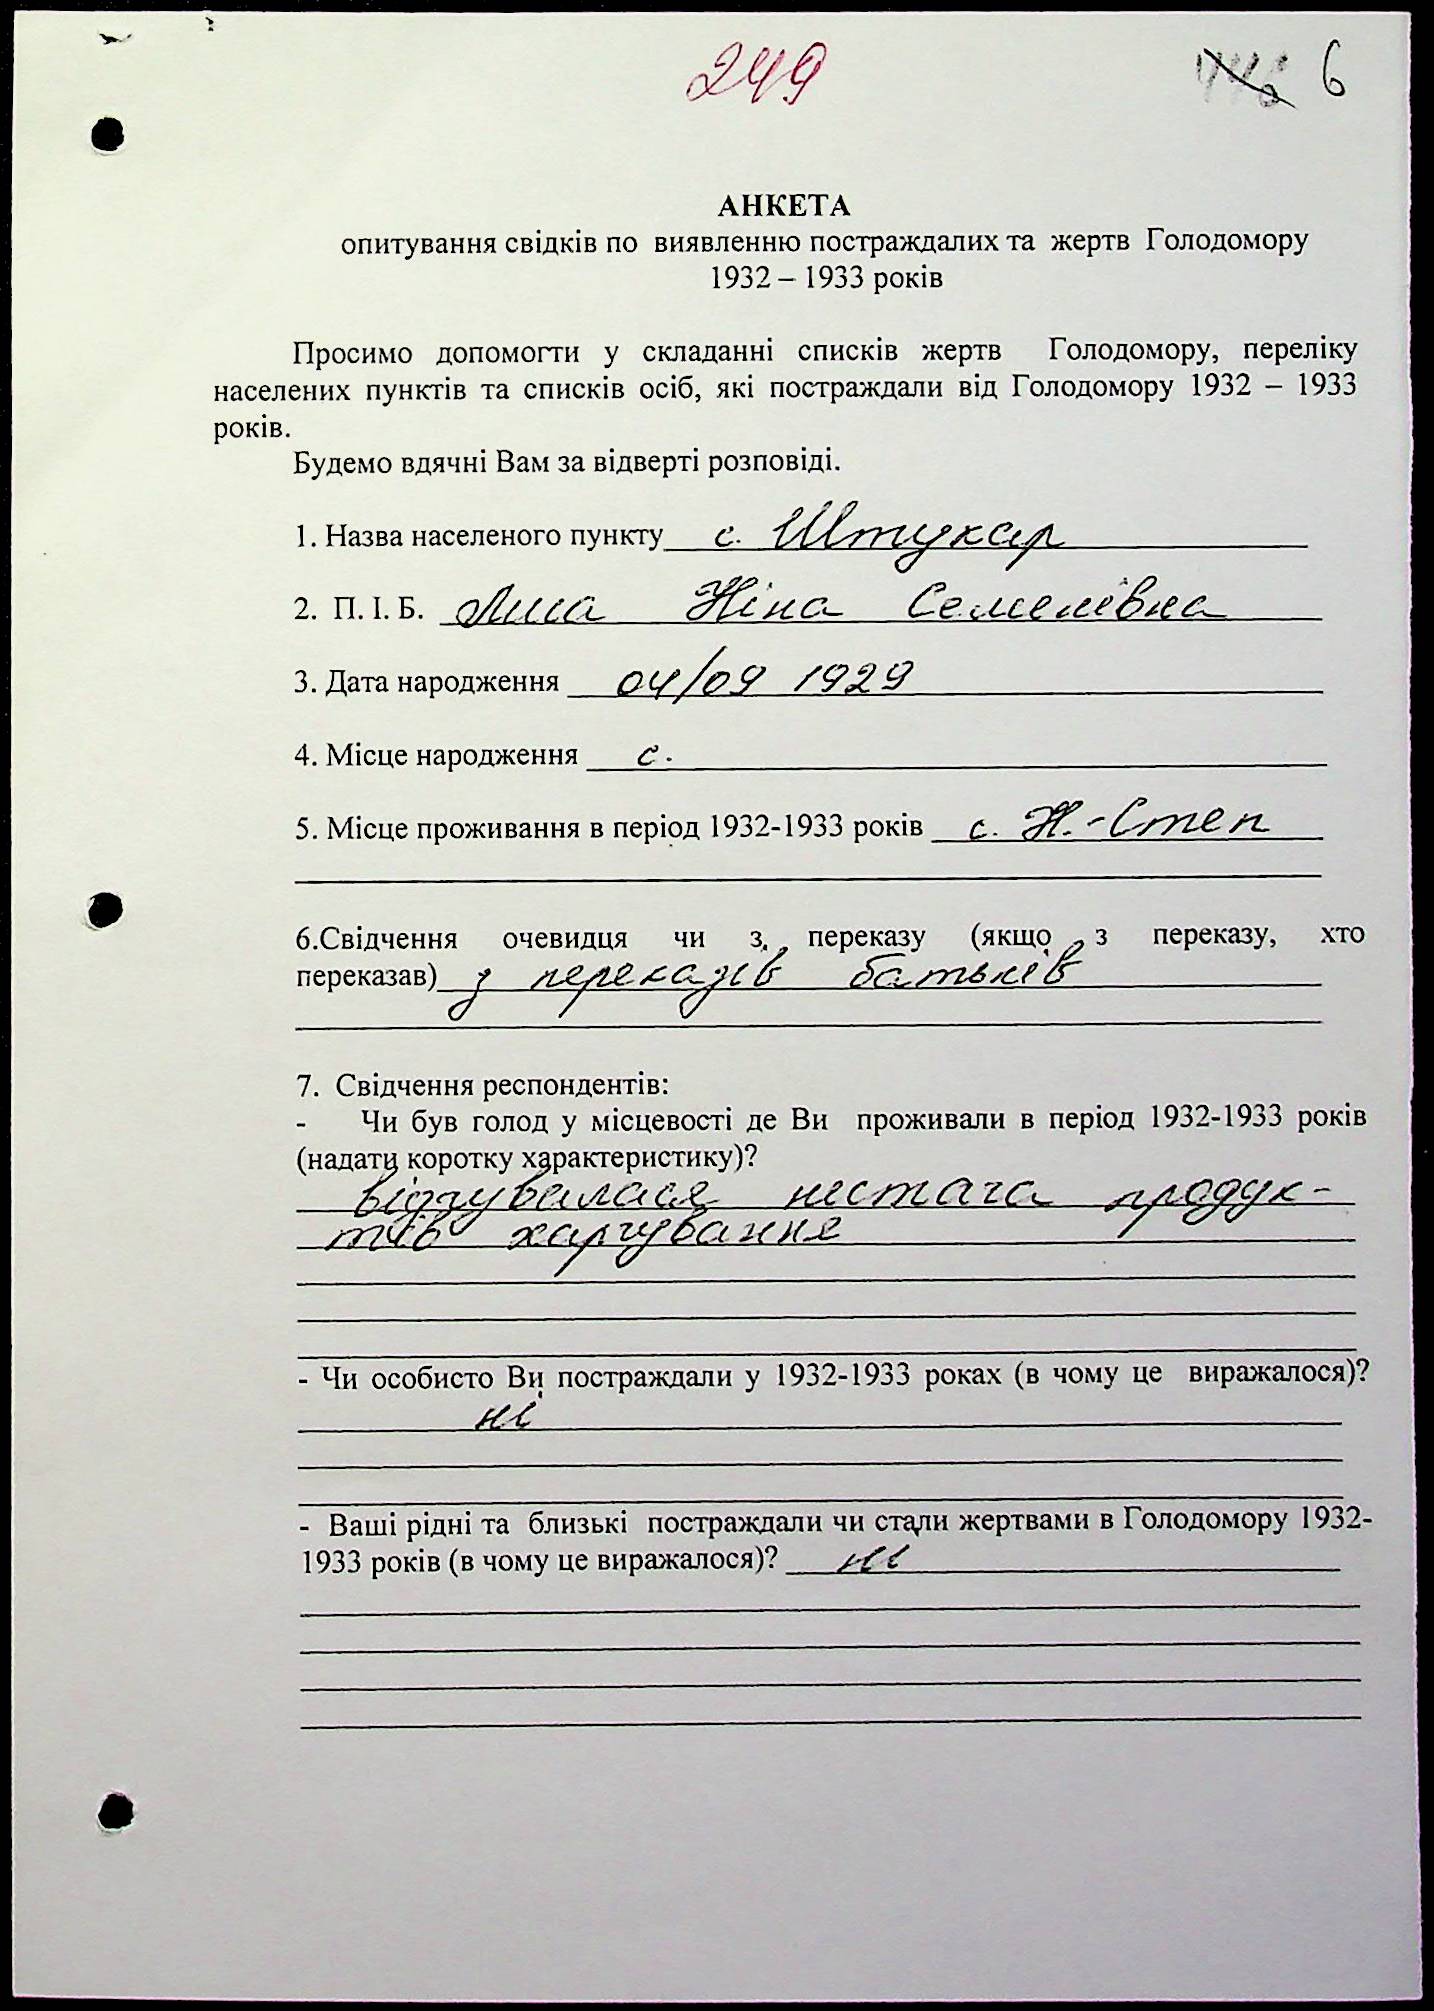 249
6
АНКЕТА
опитування свідків по виявленню постраждалих та жертв Голодомору
1932 – 1933 років
Просимо допомогти у складанні списків жертв Голодомору, переліку
населених пунктів та списків осіб, які постраждали від Голодомору 1932 – 1933
років.
Будемо вдячні Вам за відверті розповіді.
1. Назва населеного пункту с. Штукар
2. П. І. Б. Ніна Семенівна
3. Дата народження 04/09 1929
4. Місце народження с.
5. Місце проживання в період 1932-1933 років с. Н.-Степ
6.Свідчення очевидця чи з переказу (якщо з переказу, хто
переказав) з переказів батьків
7. Свідчення респондентів:
- Чи був голод у місцевості де Ви проживали в період 1932-1933 років
(надати коротку характеристику)?
відчувалася нестача продук-
тів харчування
- Чи особисто Ви постраждали у 1932-1933 роках (в чому це виражалося)?
ні
- Ваші рідні та близькі постраждали чи стали жертвами в Голодомору 1932-
1933 років (в чому це виражалося)? ні